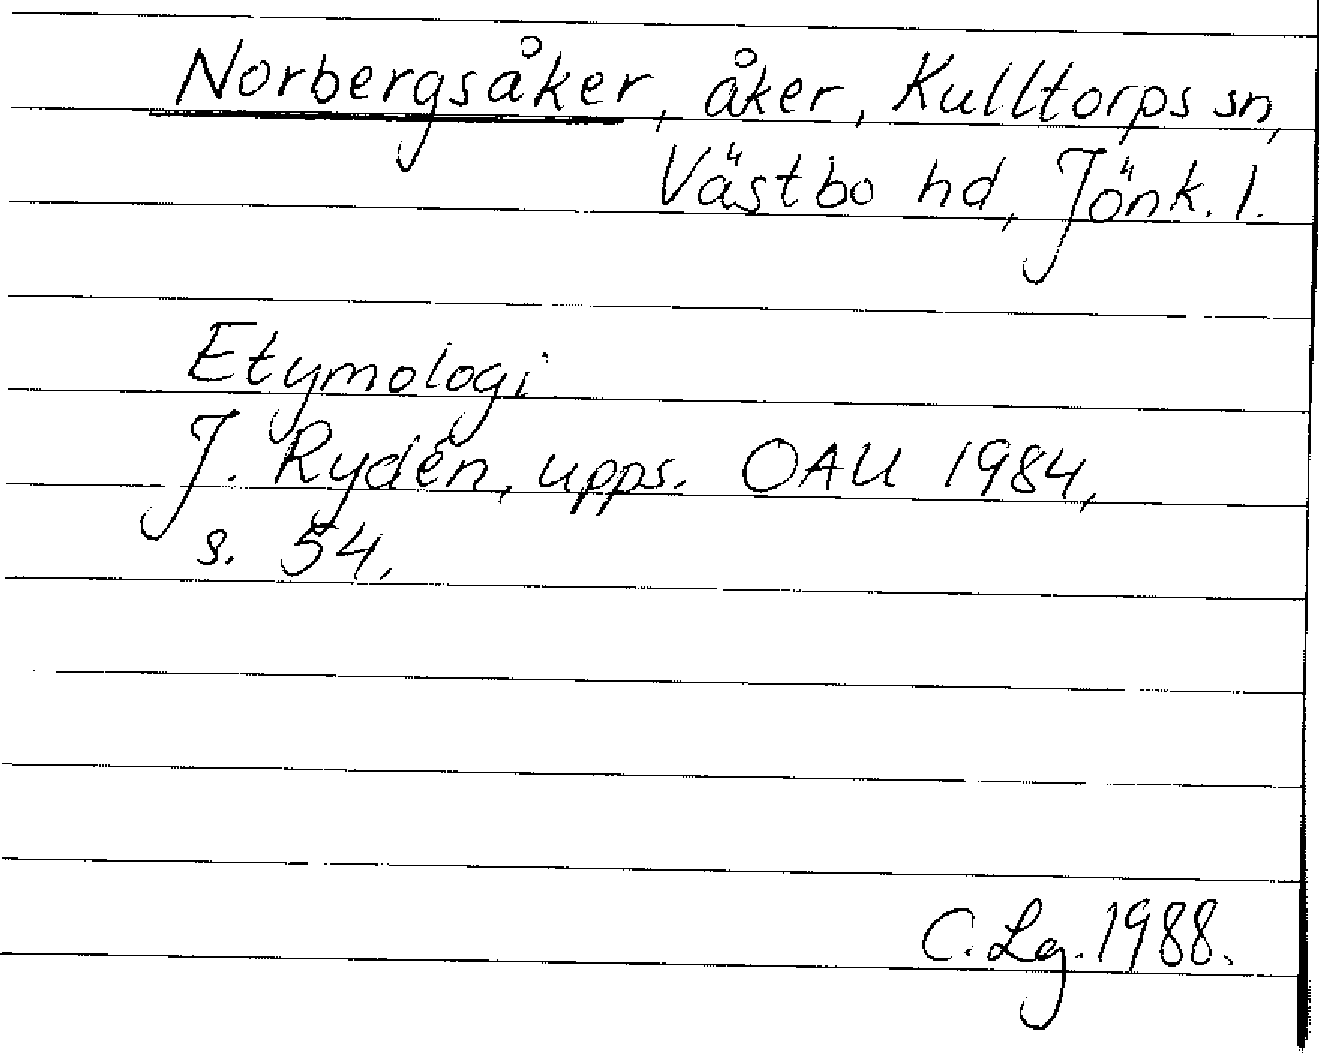 Norbergsåker, åker, Kulltorps sn,
Västbo hd, Jönk. l.
Etymologi
J. Rydén, upps. OAU 1984,
s. 54.
C. Lg. 1988.